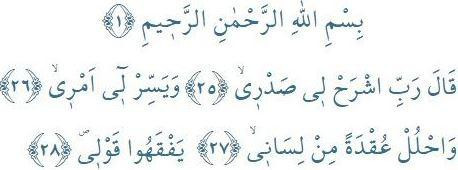 بِسْمِ اللّٰهِ الرَّحْمٰنِ الرَّحٖيمِ ﴿١﴾
قَالَ رَبِّ اشْرَحْ لٖى صَدْرٖىۙ ﴿٢٥﴾ وَيَسِّرْ لٖٓى اَمْرٖىۙ ﴿٢٦﴾
وَاحْلُلْ عُقْدَةً مِنْ لِسَانٖىۙ ﴿٢٧﴾ يَفْقَهُوا قَوْلٖىࣕ ﴿٢٨﴾